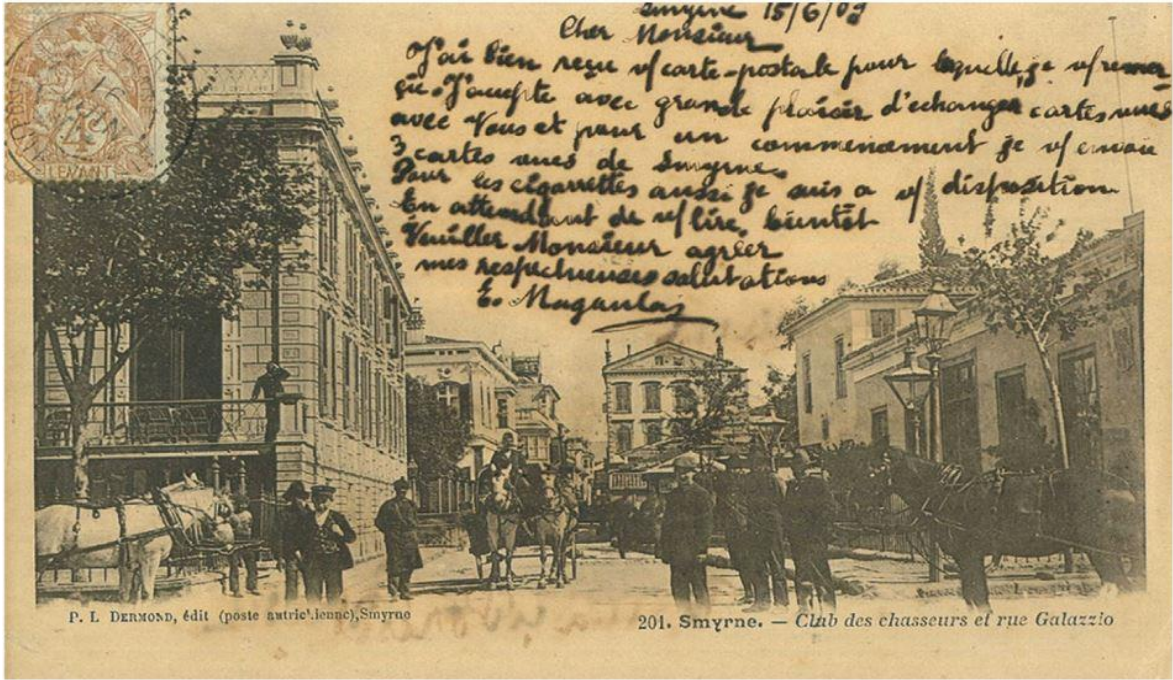 Smyrne 15/6/09
Cher Monsieur
J'ai bien reçu v/carte-postale pour laquelle je v/remer
cie. J'accepte avec grande plaisir d'echanger cartes vues
avec Vous et pour un commencement je v/envoie
3 cartes vues de Smyrne.
Pour les cigarettes aussi je suis a v/ disposition
En attendant de v/lire, bientôt
Veuiller Monsieur agréer
mes respectueuses salutations
E.
4c
LEVANT
P. L DERMOND, édit (poste autrichienne), Smyrne
201. Smyrne. — Club des chasseurs et rue Galazzio